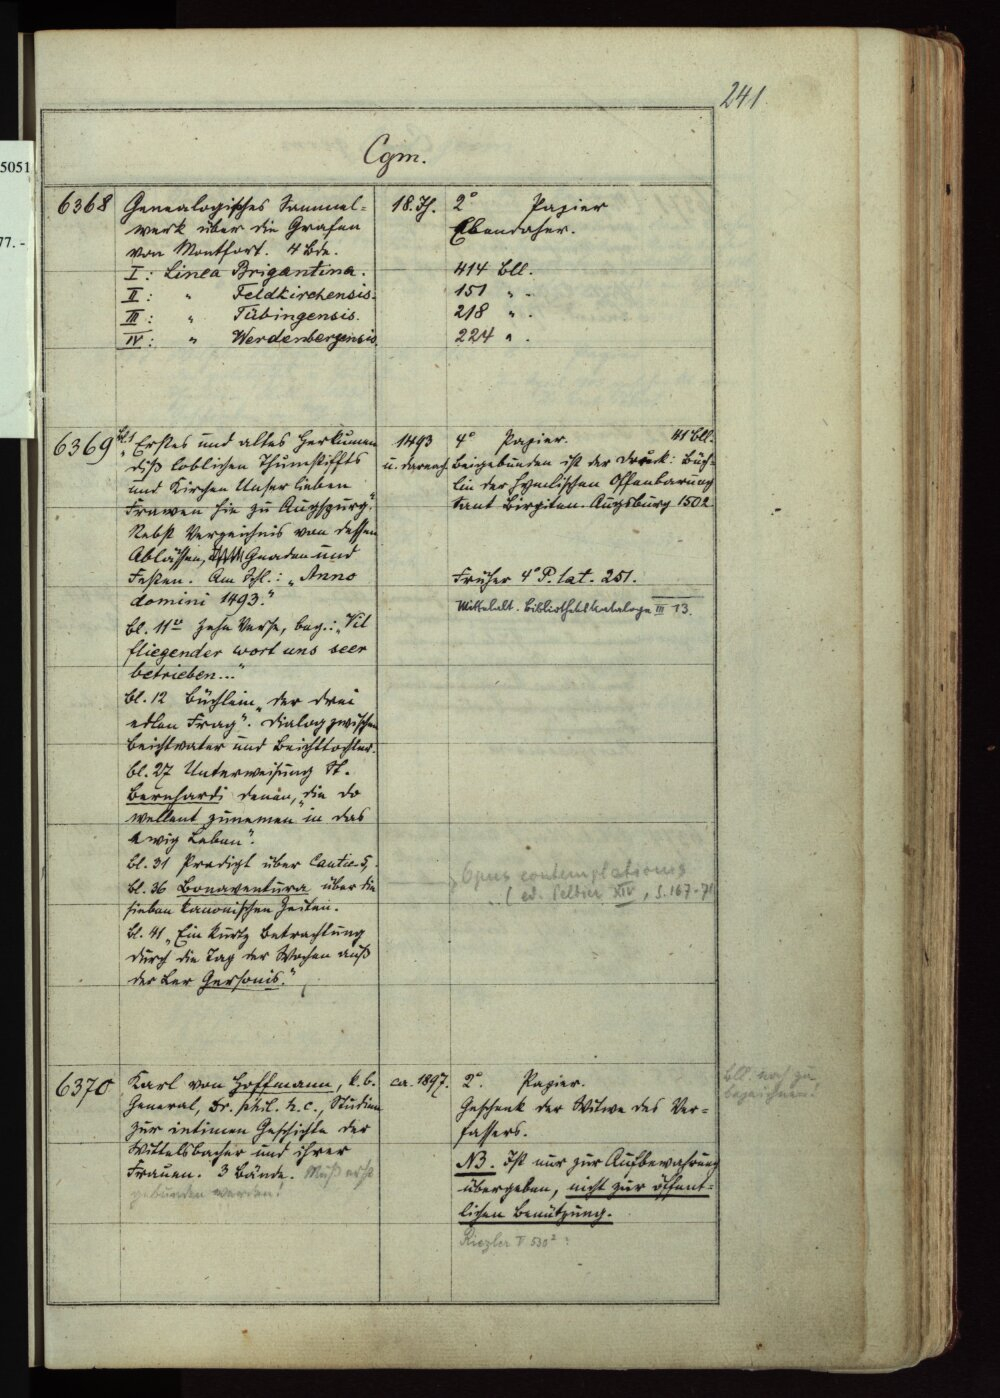 241
5051
77. -
Cgm.
6368
Genealogisches Sammel-
werk über die Grafen
von Montfort. 4 Bde.
I: Linea Brigantina.
II: " Feldkirchensis.
III: " Tübingensis.
IV: " Werdenbergensis
18. Jh.
2° Papier
Ebendaher.
414 Bll.
151 " .
218 " .
224 " .
6369
Bl. 1 „Erstes und altes Herkumen
diß loblichen Thumstiffts
und Kirchen Unser lieben
Frawen hie zu Augspurg."
Nebst Verzeichnis von dessen
Ablässen, Gnaden und
Festen. Am Schl.: „Anno
domini 1493."
Bl. 11 zehn Verse, beg.: „Vil
fliegender wort uns seer
betrieben..."
Bl. 12 Büchlein „der drei
edlen Frag". Dialog zwischen
Beichtvater und Beichttochter.
Bl. 27 Unterweisung St.
Bernhardi denen, „die do
wellent zunemen in das
ewig Leben".
Bl. 31 Predigt über Cantic. 5,
Bl. 36 Bonaventura über die
sieben kanonischen Zeiten.
Bl. 41 „Ein kurtz Betrachtung
durch die Tag der Wochen auß
der Ler Gersonis."
1493
u. darnach.
4° Papier. 41 Bll.
Beigebunden ist der Druck: Büch-
lin der hymlischen Offenbarung
sant Birgiten. Augsburg 1502.
Früher 4° P. lat. 251.
Mittelalt. Bibliothekskataloge III 13.
Opus contemplationis
(ed. Peltier XIV, S. 167-71
6370
Karl von Hoffmann, k. b.
General, Dr. phil. h. c., Studien
zur intimen Geschichte der
Wittelsbacher und ihrer
Frauen. 3 Bände. Muß erst
gebunden werden!
ca. 1897.
2°. Papier.
Geschenk der Witwe des Ver-
fassers.
NB. Ist nur zur Aufbewahrung
übergeben, nicht zur öffent-
lichen Benützung.
Riezler V 530²
Bll. noch zu
bezeichnen!